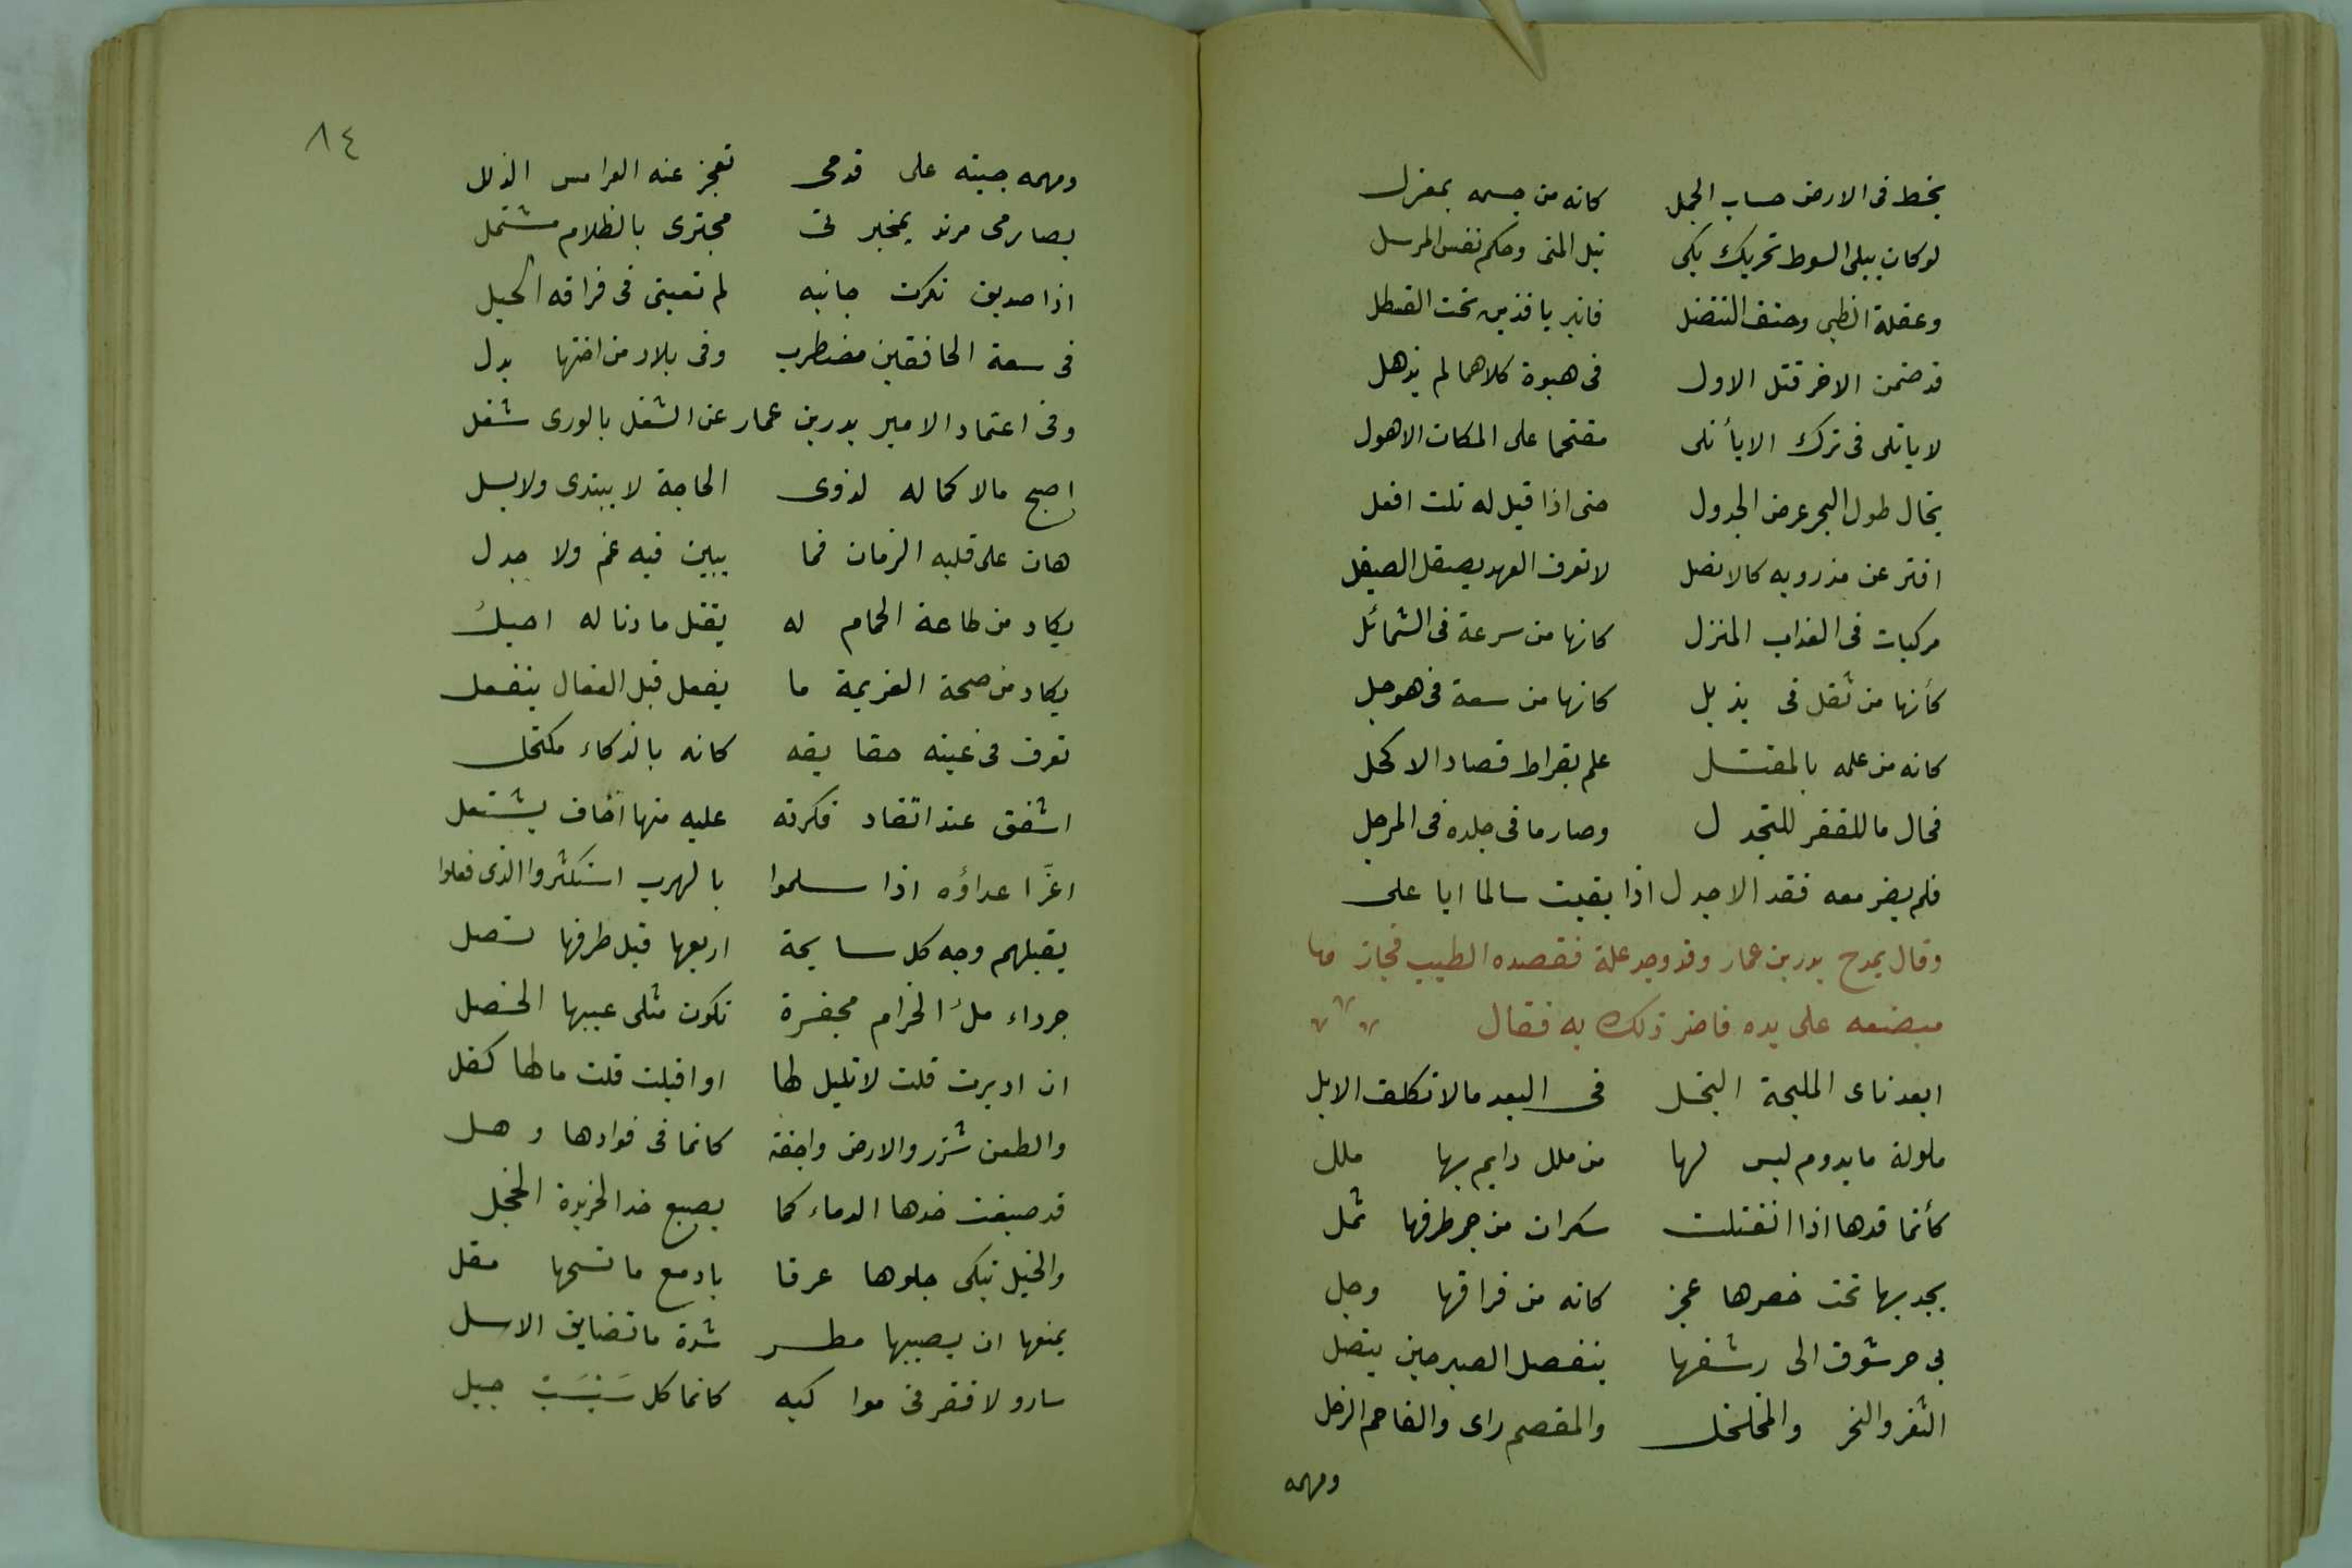 يخط فى الارض حساب الجمل كانه من جسمه بمعزل
لو كان يبلى السوط تحريك بكى نيل المنى وحكم نفس المرسل
وعقلة الظبى وحتف التتفل فانبريا فذين تحت القسطل
قد ضمن الاخر قتل الاول فى هبوة كلاهما لم يذهل
لا ياتلى فى ترك الا يأتلى مقتحما على المكان الاهول
يخال طول البحر عرض الجدول حتى اذا قيل له نلت افعل
افتر عن مذرويه كالانصل لا تعرف العهد بصقل الصيقل
مركبات فى العذاب المنزل كانها من سرعة فى الشمأل
كأنها من ثقل فى يذبل كانها من سعة فى هوجل
كانه من علمه بالمقتل علم بقراط فصاد الاكحل
فحال ما للقفز للتجدل وصار ما فى جلده فى المرجل
فلم يضر معه فقد الاجدل اذا بقيت سالما ابا على
وقال يمدح بدر بن عمار وقد وجد علة ففصده الطبيب فجاز ما
مبضعه على يده فاضر ذلك به فقال
ابعد ناى المليحة البخل فى البعد مالا تكلف الابل
ملولة ما يدوم ليس لها من ملل دايم بها ملل
كأنما قدها اذا انفتلت سكران من خمر طرفها ثمل
يجذبها تحت خصرها عجز كانه من فراقها وجل
بى حر شوق الى رشفها ينفصل الصبر حين يتصل
الثغر والنحر والمخلخل والمعصم راى والفاحم الرجل
ومهمه
٨٤
ومهمه جبته على قدمى تعجز عنه العرامس الذلل
بصارمى مرتد بمخبرتى مجتزى بالظلام مشتمل
اذا صديق نكرت جانبه لم تعينى فى فراقه الحيل
فى سعة الخافقين مضطرب وفى بلاد من اختها بدل
وفى اعتماد الامير بدر بن عمار عن الشغل بالورى شغل
اصبح مالا كماله لذوى الحاجة لا يبتدى ولا يسل
هان على قلبه الزمان فما يبين فيه غم ولا جدل
يكاد من طاعة الحمام له يقتل ما دنا له اجل
يكاد من صحة العزيمة ما يفعل قبل الفعال ينفعل
تعرف فى عينه حقايقه كانه بالذكاء مكتحل
اشفق عند اتقاد فكرته عليه منها اخاف يشتعل
اغرّ اعداؤه اذا سلموا بالهرب استكثروا الذى فعلوا
يقبلهم وجه كل سابحة اربعها قبل طرفها تصل
جرداء ملء الحزام مجفرة تكون مثلى عسيبها الخصل
ان ادبرت قلت لا تليل لها او اقبلت قلت مالها كفل
والطعن شزر والارض واجفة كانما فى فوادها وهل
قد صبغت خدها الدماء كما يصبغ خد الخريدة الخجل
والخيل تبكى جلودها عرقا بادمع ما تسحها مقل
يمنعها ان يصيبها مطر شدة ما تضايق الاسل
سار ولا قفر فى مواكبه كانما كل سَبْسَبٍ جبل